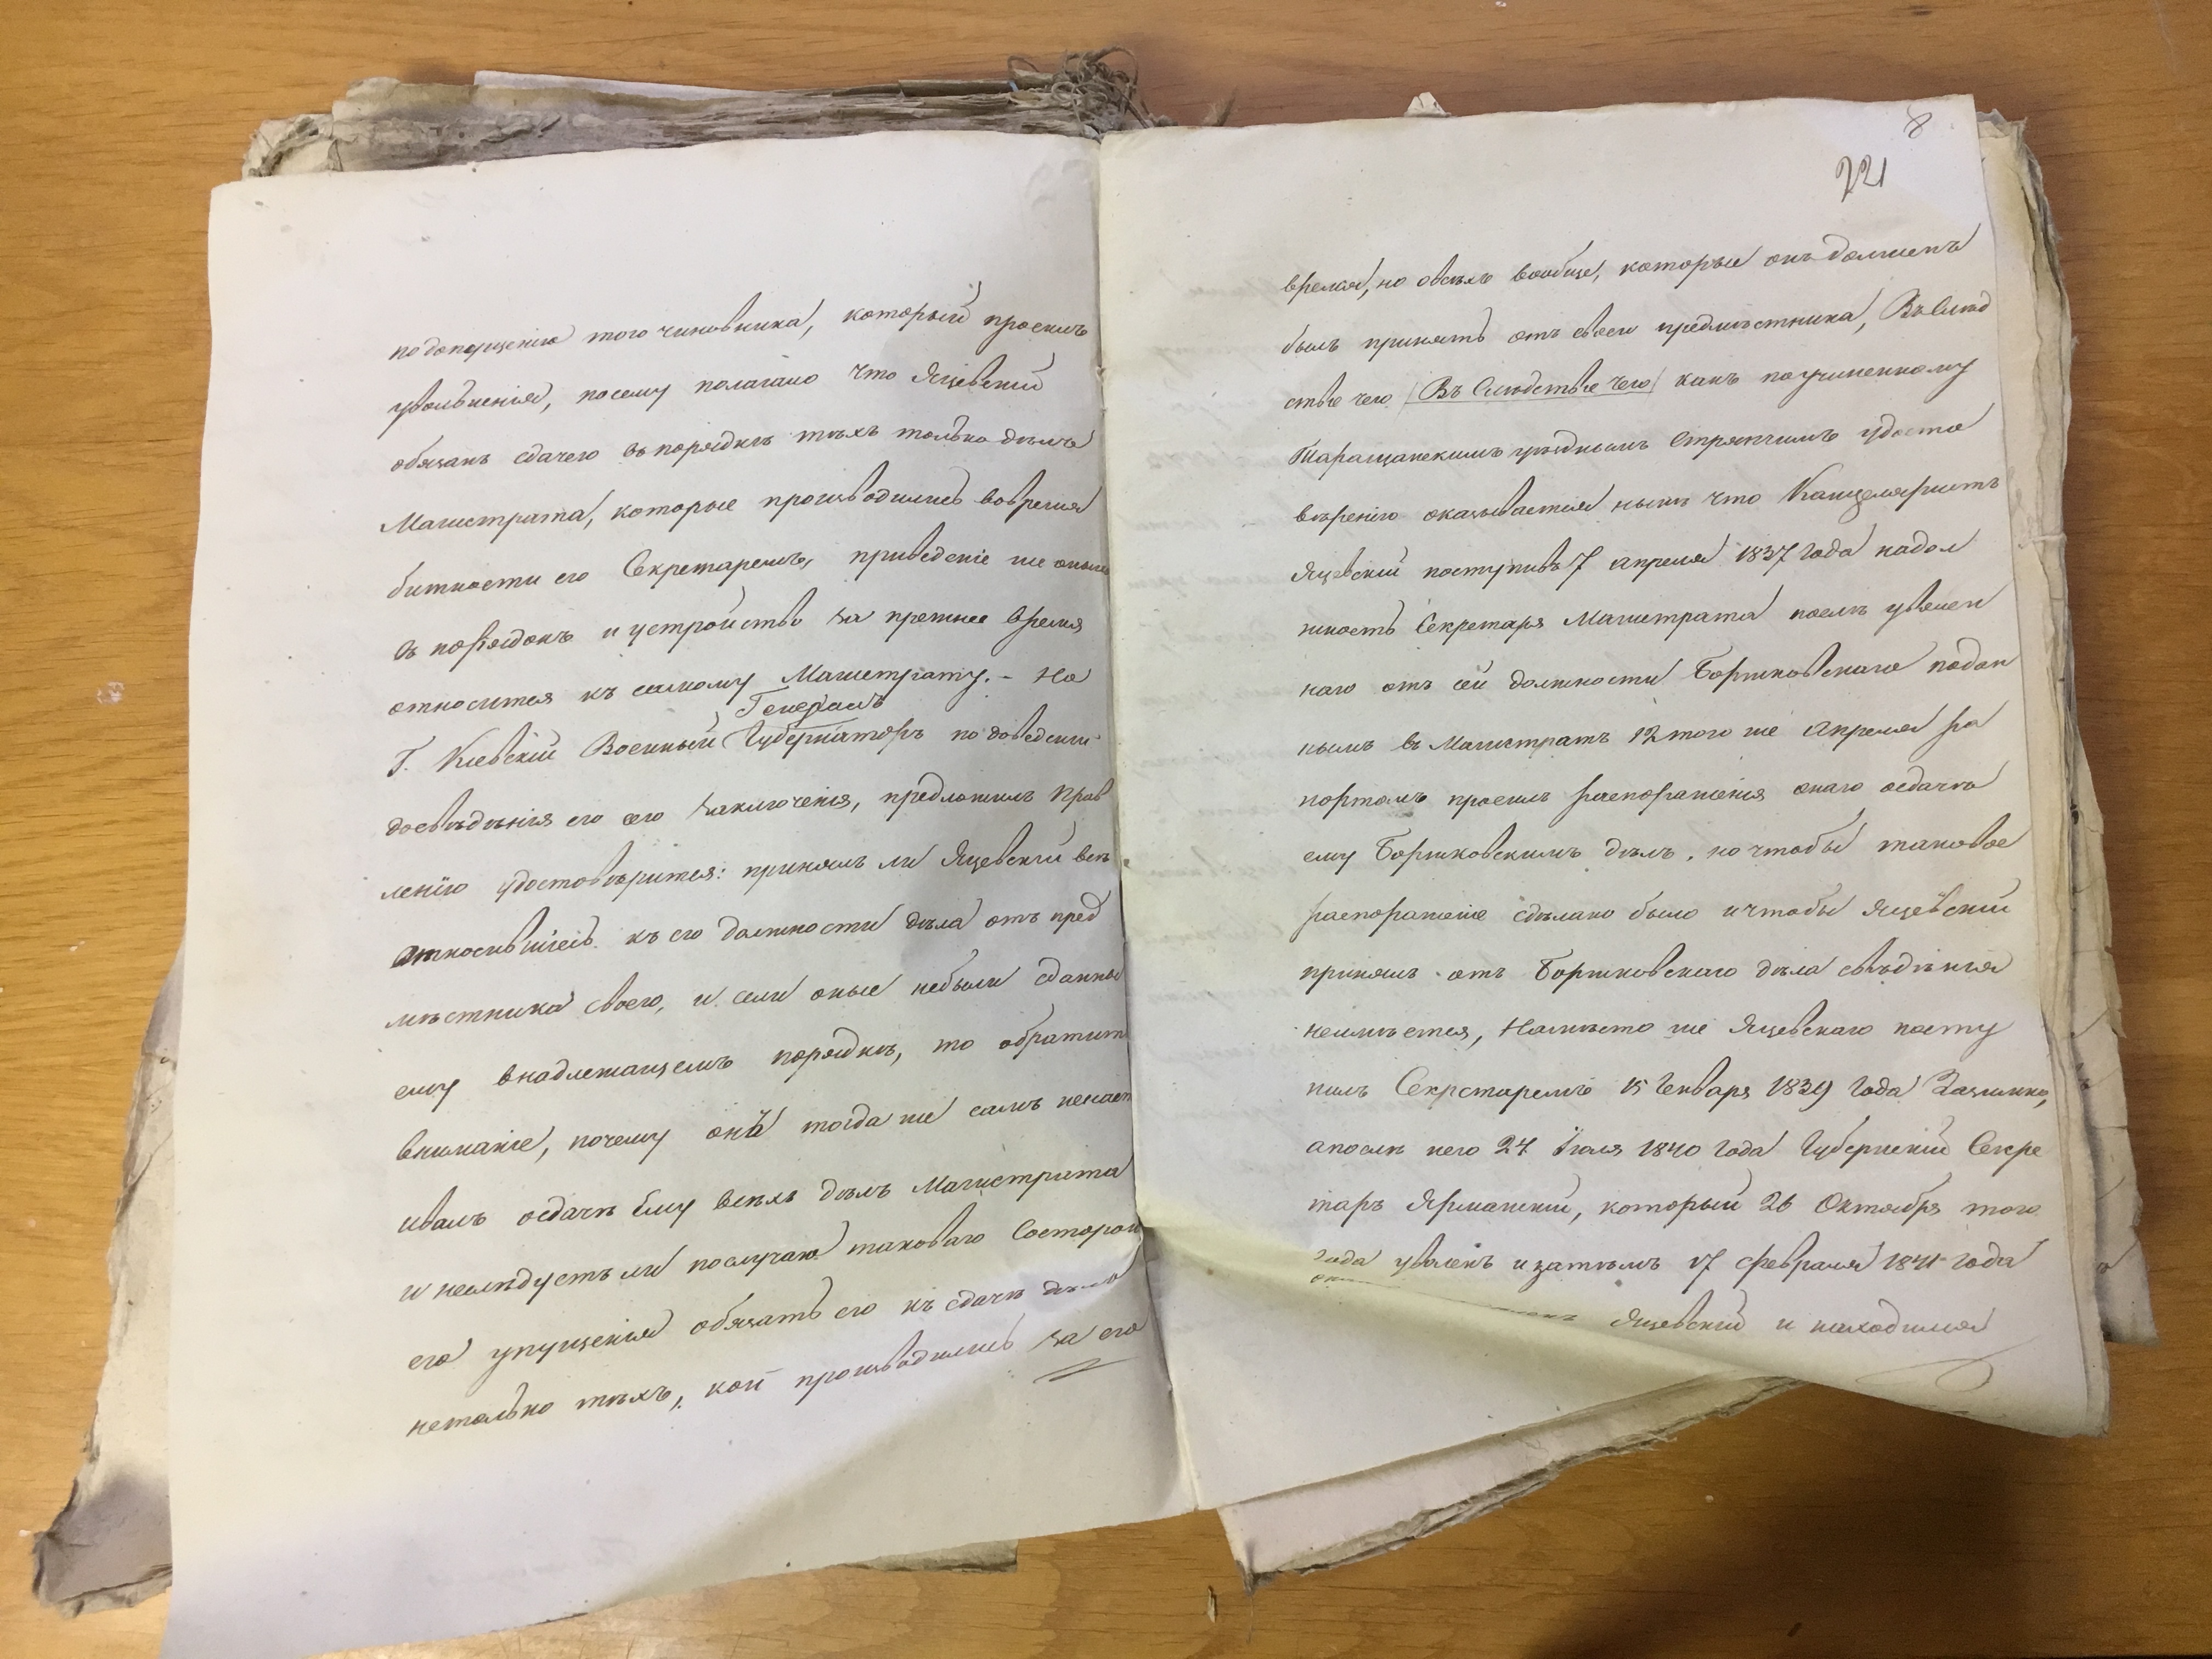 по допущенію того чиновника, который просилъ
увольненія, посему полагало что Яцевскій
обязанъ сдачею въ порядкѣ тѣхъ только дѣлъ
Магистрата, которые производились вовремя
битности его Секретаремъ, приведеніе же оныхъ
въ порядокъ и устройство за прежнее время
относится къ самому Магистрату. – Но
Генералъ
Г. Кіевскій Военный Губернаторъ по доведеніи
досвѣдѣнія его сего заключенія, предложилъ Прав
ленію удостовѣрится: принялъ ли Яцевскій всѣ
относившіесь къ его должности дѣла отъ пред
мѣстника своего, и если оные небыли сданны
ему внадлежащемъ порядкѣ, то обратить
вниманіе, почему онъ тогда же самъ ненаст
ивалъ осдачѣ ему всѣхъ дѣлъ Магистрата
и неслѣдуетъ ли послучаю таковаго состороны
его упущенія обязать его къ сдачѣ дѣлъ
нетолько тѣхъ, кои производились за его
8
221
время, но овсѣхъ вообще, которые онъ долженъ
былъ принять отъ своего предмѣстника, Въ Слѣд
ствіе чего (Въ Слѣдствіе чего) какъ поучиненному
Таращанскимъ уѣзднымъ Стряпчимъ удосто
вѣренію оказывается нынѣ что Канцеляристъ
Яцевскій поступивъ 7 апреля 1837 года надол
жность Секретаря Магистрата послѣ уволен
наго отъ сей должности Боржковскаго подан
нымъ въ Магистратъ 12 того же Апреля ра
портомъ просилъ распораженія онаго осдачѣ
ему Боржковскимъ дѣлъ, но чтобы таковое
распораженіе сдѣлано было и чтобы Яцевскій
принялъ отъ Боржковскаго дѣла свѣдѣнія
неимѣется, Намѣсто же Яцевскаго посту
пилъ Секретаремъ 15 Генваря 1839 года
апослѣ него 24 Іюля 1840 года Губернскій Секре
таръ Ярманскій, который 26 Октября того
года уволенъ и затѣмъ 17 февраля 1841 года
Яцевскій и находился